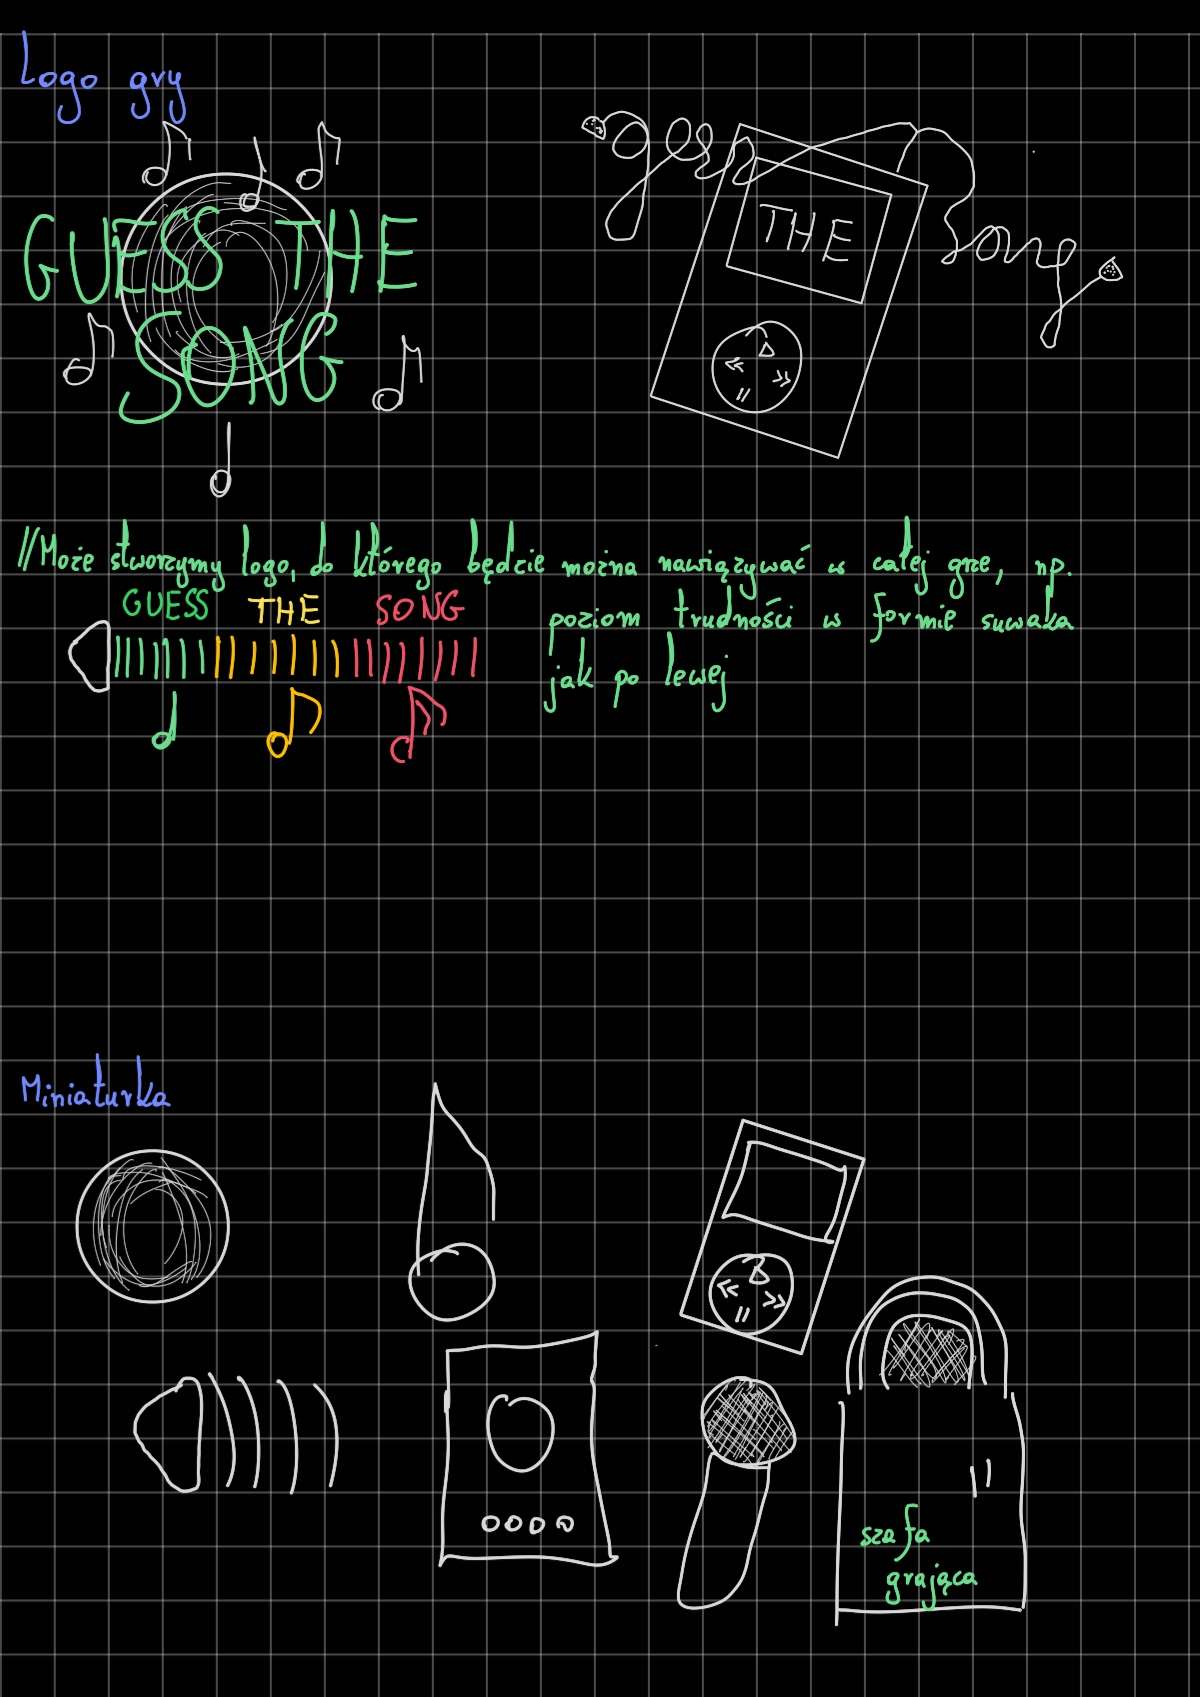 Logo gry
GUESS THE
SONG
THE
song
//Może stworzymy logo, do którego będzie można nawiązywać w całej grze, np.
poziom trudności w formie suwaka
jak po lewej
GUESS THE SONG
Miniaturka
szafa
grająca